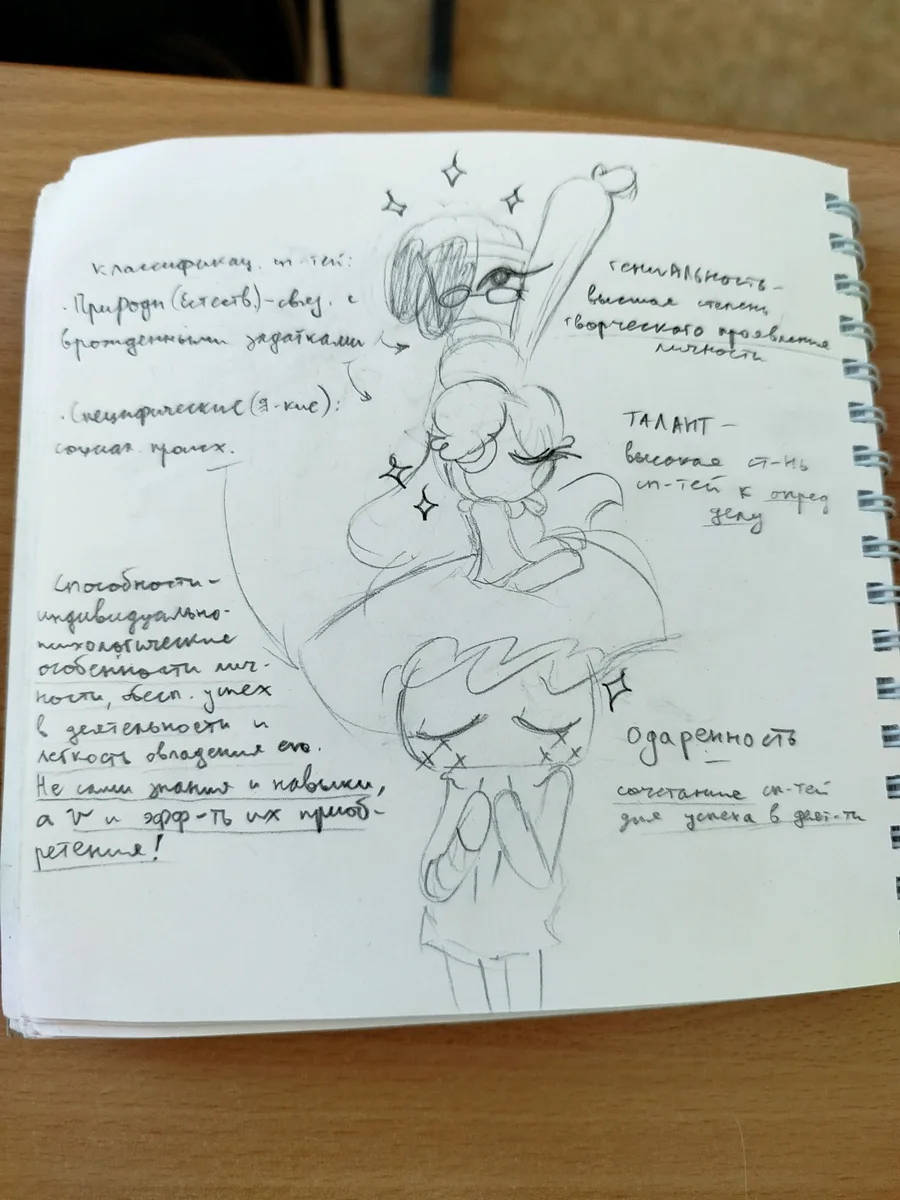 Классификац. сп-тей:
· Природн (Естеств.) - связ. с
врождёнными задатками
· Специфические (Ч-кие):
социал. происх.
Способности -
индивидуально-
психологические
особенности лич-
ности, обесп. успех
в деятельности и
лёгкость овладения ею.
Не сами знания и навыки,
а V и эфф-ть их приоб-
ретения!
ГЕНИАЛЬНОСТЬ -
высшая степень
творческого проявления
личности
ТАЛАНТ -
высокая ст-нь
сп-тей к опред
делу
Одаренность
сочетание сп-тей
для успеха в деят-ти